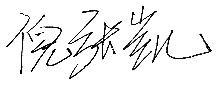 倪张凯